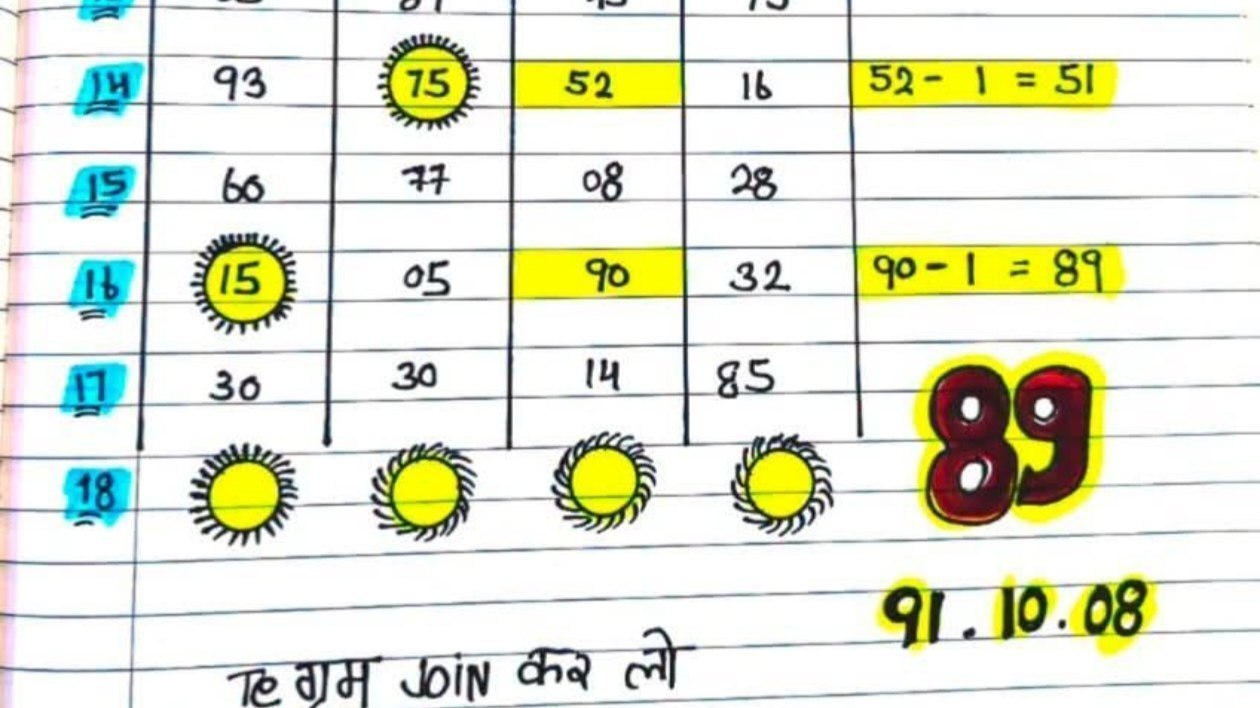 14 93 75 52 16 52 - 1 = 51
15 60 77 08 28
16 15 05 90 32 90 - 1 = 89
17 30 30 14 85
89
18
91 . 10 . 08
Te ग्राम JOIN कर लो